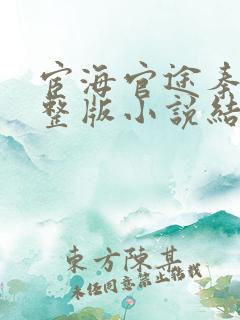 宦海官途秦
整版小說結
東方陳某
未經同意禁止轉載